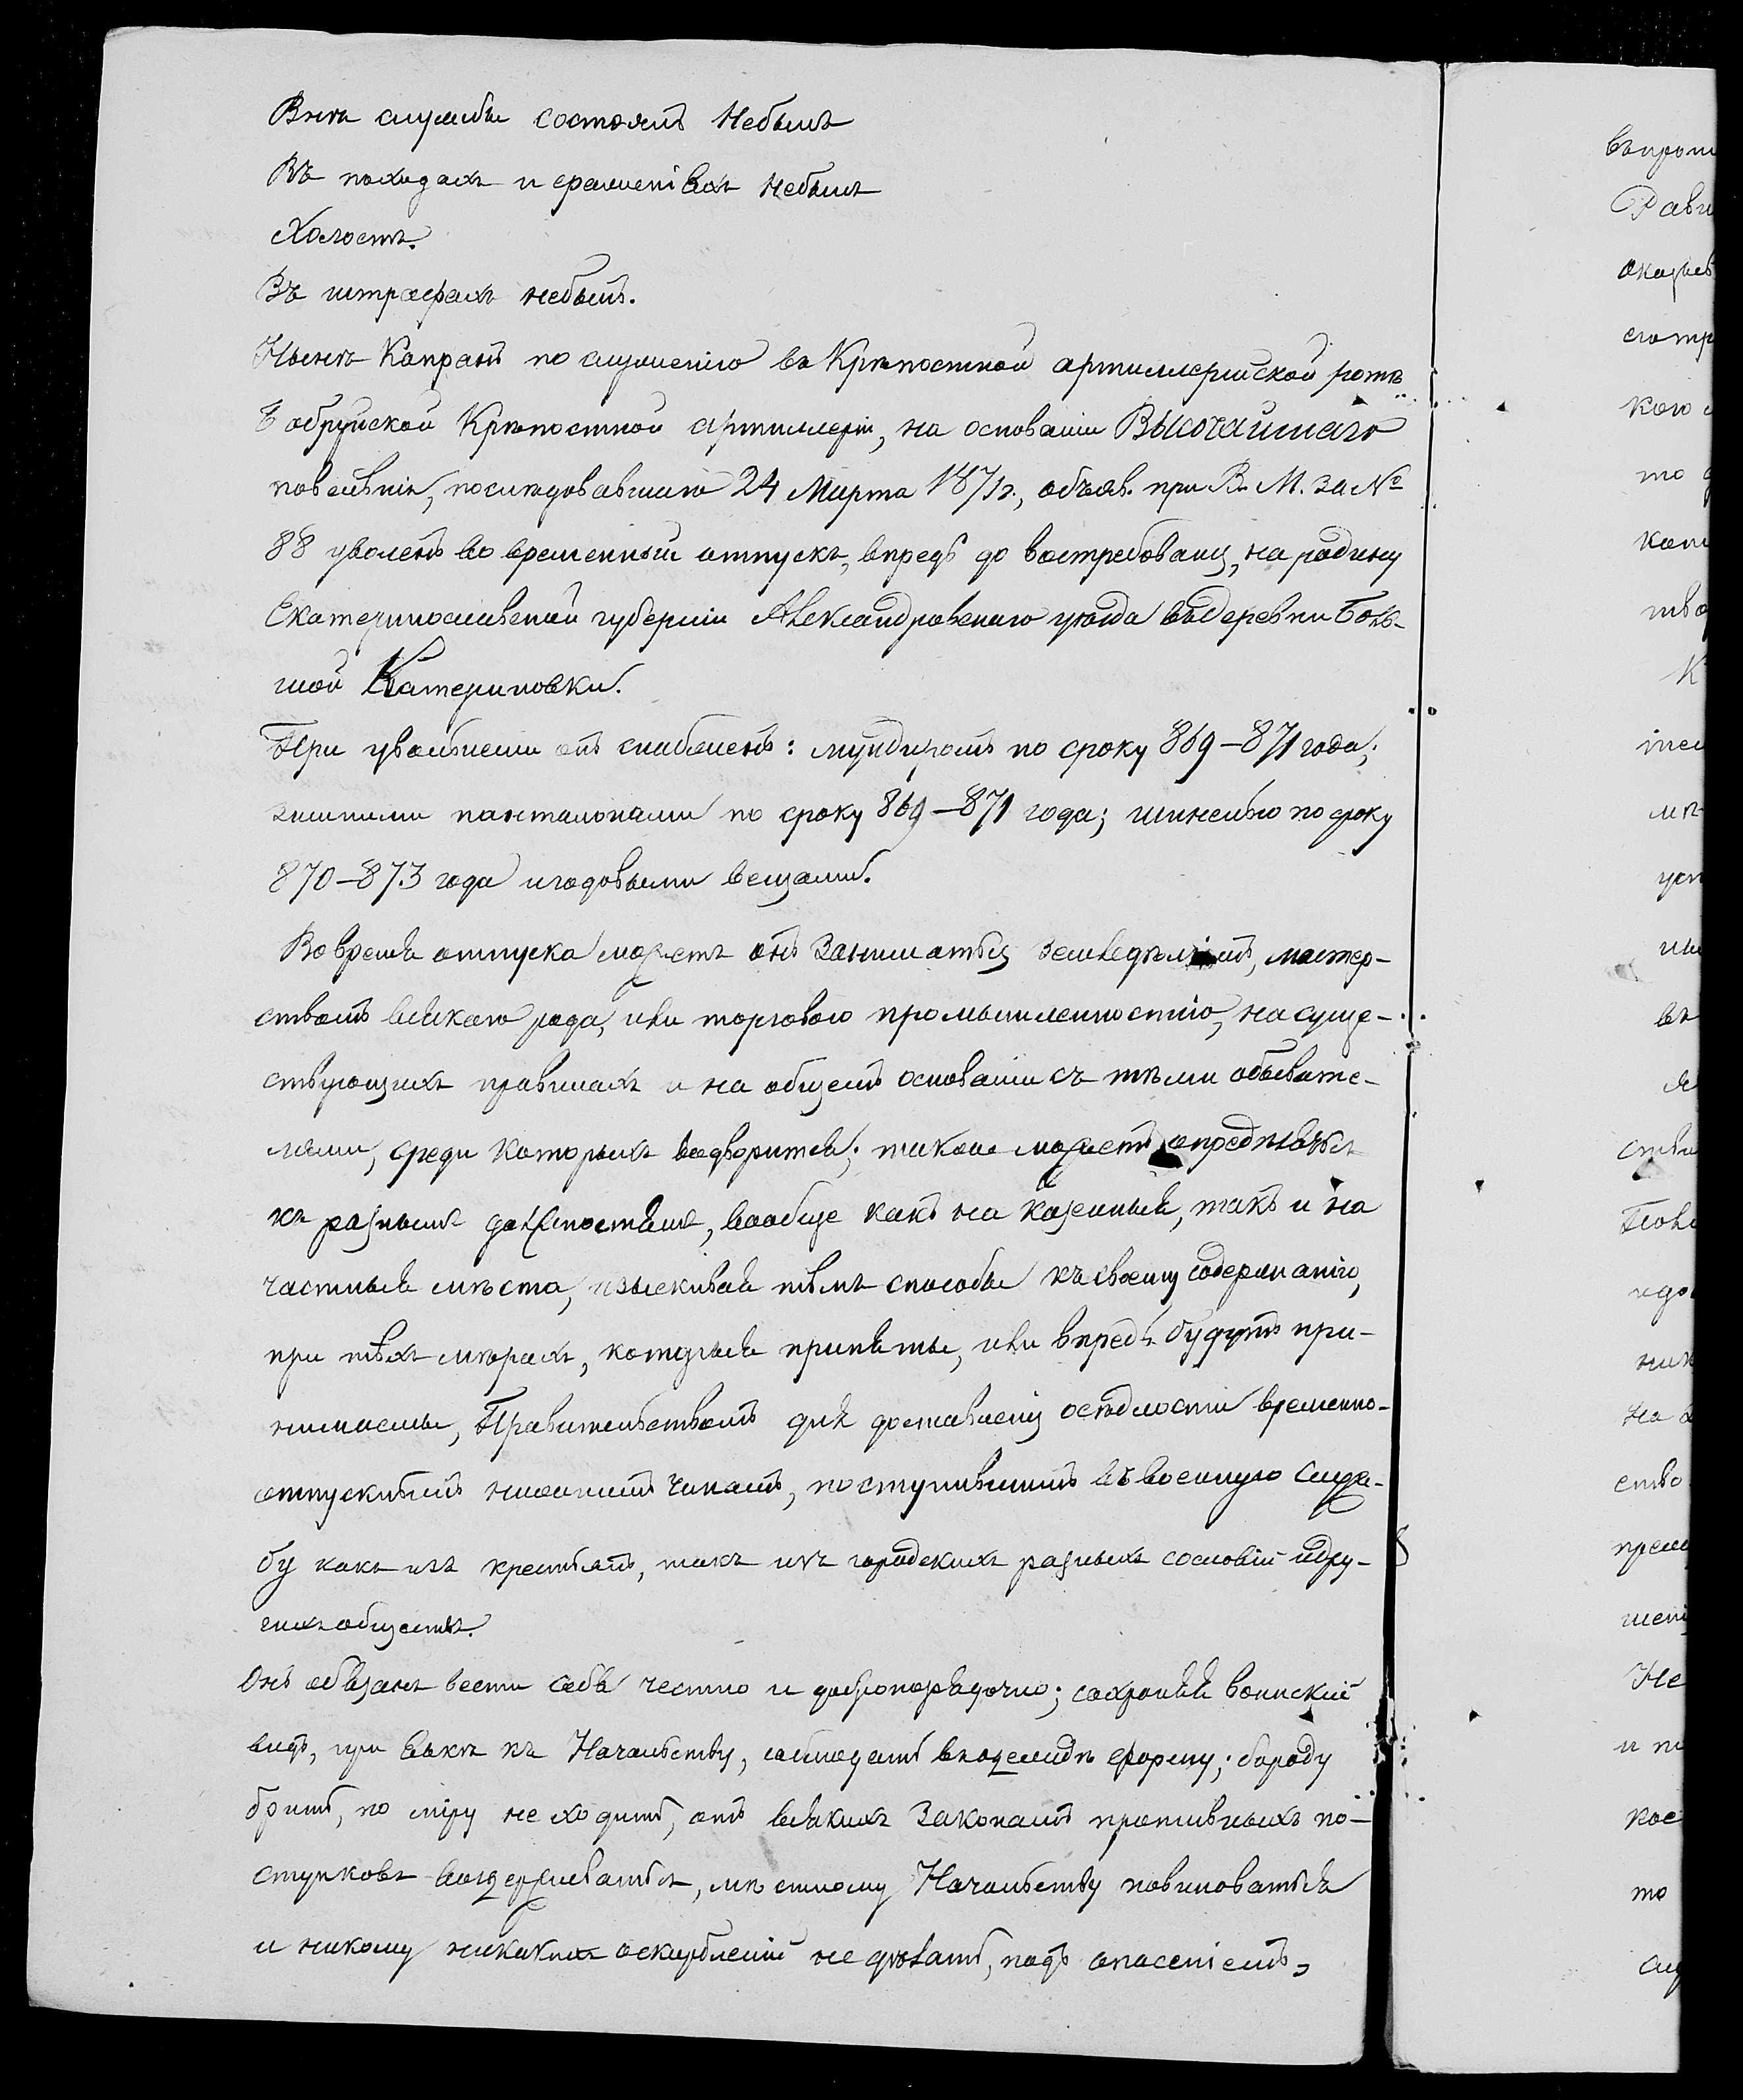 Внѣ службы состоялъ небылъ
Въ походахъ и сраженіяхъ небылъ
Холостъ.
Въ штрафахъ небылъ.
Нынѣ по служенію въ Крѣпостной артиллерійской ротѣ
Бобруйской Крѣпостной артиллеріи, на основаніи Высочайшаго
повелѣнія, послѣдовавшаго 24 Марта 1871г., объяв. при В. М. за №
88 уволенъ во временный отпускъ, впредь до востребованія, на родину
Екатеринославской губерніи Александровскаго уѣзда въ деревни Боль-
шой Катериновки.
При увольненіи онъ снабженъ: мундиромъ по сроку 869–871 года;
зимними панталонами по сроку 869–871 года; шинелью по сроку
870–873 года и годовыми вещами.
Во время отпуска можетъ онъ заниматься земледѣліемъ, мастер-
ствомъ всякаго рода, или торговою промышленностію, на суще-
ствующихъ правилахъ и на общемъ основаніи съ тѣми обывате-
лями, среди которыхъ водворится; также можетъ опредѣляться
къ разнымъ должностямъ, вообще какъ на казенныя, такъ и на
частныя мѣста, изыскивая тѣмъ способы къ своему содержанію,
при тѣхъ мѣрахъ, которыя приняты, или впредь будутъ при-
нимаемы, Правительствомъ для доставленія осѣдлости временно-
отпускнымъ нижнимъ чинамъ, поступившимъ въ военную служ-
бу какъ изъ крестьянъ, такъ изъ городскихъ разныхъ сословій и дру-
гихъ обществъ.
Онъ обязанъ вести себя честно и добропорядочно; сохраняя воинскій
видъ, при явкѣ къ Начальству, соблюдать въ одеждѣ форму; бороду
брить, по міру не ходить, отъ всякихъ законамъ противныхъ по-
ступковъ воздерживаться, мѣстному Начальству повиноваться
и никому никакихъ оскорбленій не дѣлать, подъ опасеніемъ,